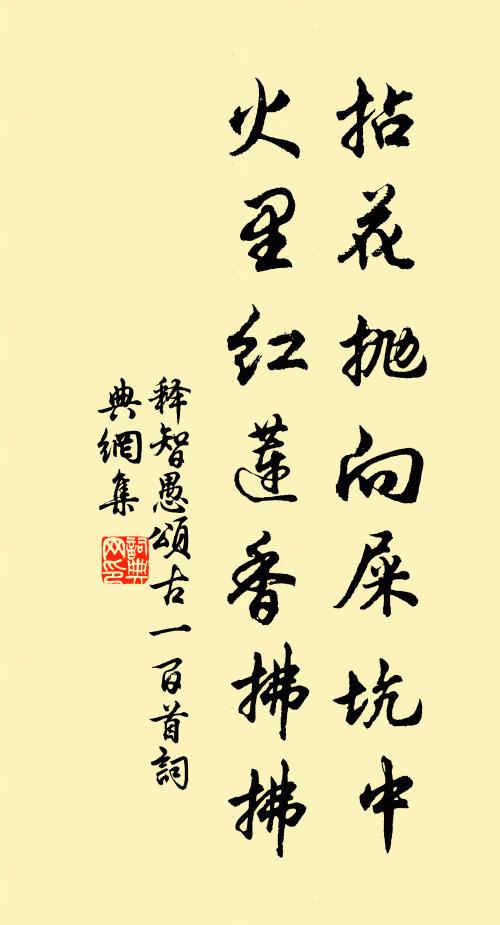 拈花抛向屎坑中
火里红莲香拂拂
释智愚颂古一百首詞
典網集
詞典網印